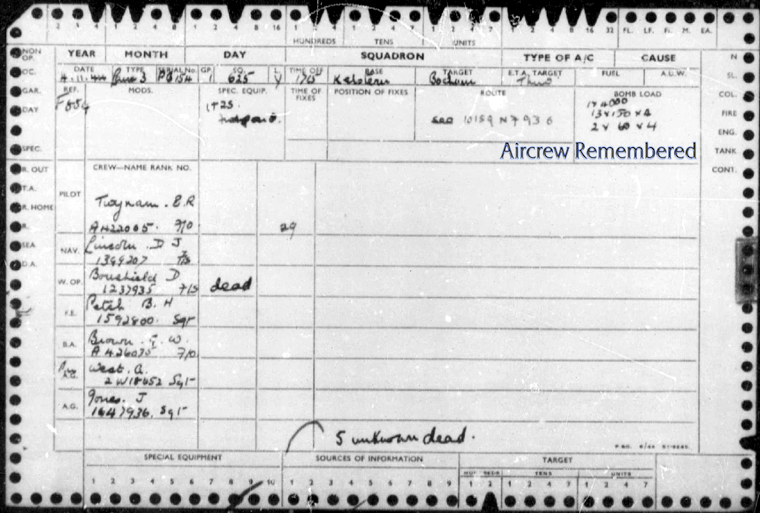 2 4 8 16 32 FL. LF. FI. M. EA.
HUNDREDS TENS UNITS
NON OP. YEAR MONTH DAY SQUADRON TYPE OF A/C CAUSE N
OC. DATE TYPE SERIAL No. GP. SQ. TIME OFF BASE TARGET E.T.A. TARGET FUEL A.U.W. SL.
4.11.44 3 PB154 1 625 Y Kelstern Bochum
GAR. REF. MODS. SPEC. EQUIP. TIME OF FIXES POSITION OF FIXES ROUTE BOMB LOAD COL.
DAY F 1 x 4000 FIRE
10159 N 7 936 13 x 150 x 4
2 x 60 x 4 ENG.
SPEC. Aircrew Remembered TANK
R. OUT CREW—NAME RANK NO. CONT.
T.A.
R. HOME PILOT E.R
R. A422005. F/O 29
SEA NAV. Lincoln. D J
D.A. 1399207 F/S
W. OP. D dead
1237935 F/S
F.E. Petch B. H
1592800. Sgt
B.A. Brown. G. W.
A 426035 F/O.
A.G. West. A.
Sgt
A.G. Jones. J
1647936. Sgt
5 unknown dead.
SPECIAL EQUIPMENT SOURCES OF INFORMATION TARGET
TENS UNITS
1 2 3 4 5 6 7 8 9 10 1 2 3 4 5 6 7 8 9 1 2 1 2 4 7 1 2 4 7